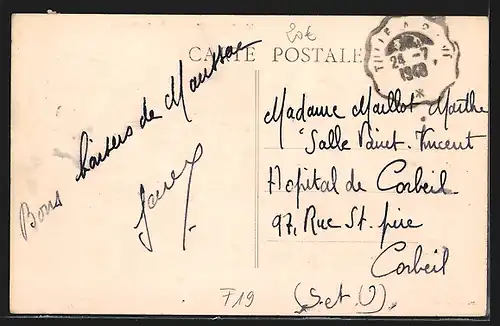 20€
CARTE POSTALE
TULLE A
24-7
1940
Bons baisers de Maussac
Madame Maillot Marthe
Salle Saint-Vincent
Hopital de Corbeil
97, Rue St. père
Corbeil
(S. et O).
F19